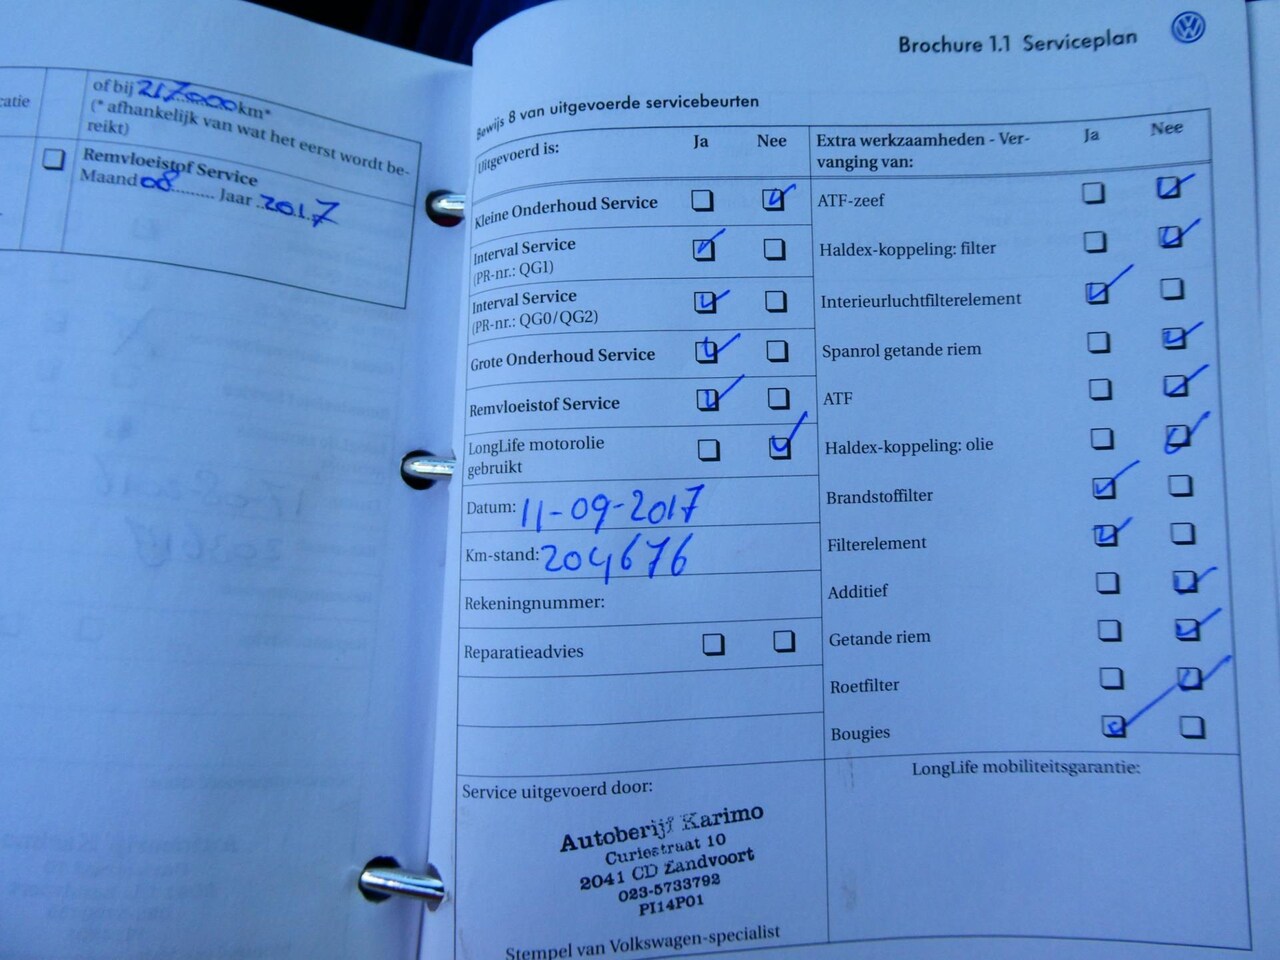 catie
of bij 217000 km*
(* afhankelijk van wat het eerst wordt be-
reikt)
Remvloeistof Service
Maand 08 Jaar 2017
Brochure 1.1 Serviceplan
Bewijs 8 van uitgevoerde servicebeurten
Uitgevoerd is: Ja Nee
Kleine Onderhoud Service
Interval Service
(PR-nr.: QG1)
Interval Service
(PR-nr.: QG0/QG2)
Grote Onderhoud Service
Remvloeistof Service
LongLife motorolie
gebruikt
Datum: 11-09-2017
Km-stand: 204676
Rekeningnummer:
Reparatieadvies
Extra werkzaamheden - Ver- Ja Nee
vanging van:
ATF-zeef
Haldex-koppeling: filter
Interieurluchtfilterelement
Spanrol getande riem
ATF
Haldex-koppeling: olie
Brandstoffilter
Filterelement
Additief
Getande riem
Roetfilter
Bougies
Service uitgevoerd door:
Autoberijf Karimo
Curiestraat 10
2041 CD Zandvoort
023-5733792
PI14P01
Stempel van Volkswagen-specialist
LongLife mobiliteitsgarantie: